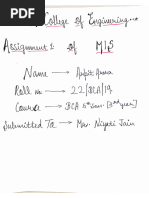 College of Engineering
Assignment 1 of MIS
Name → Arpit Arora
Roll no → 22/BCA/19
Course → BCA 5th Sem. [3rd year]
Submitted To → Mrs. Niyati Jain